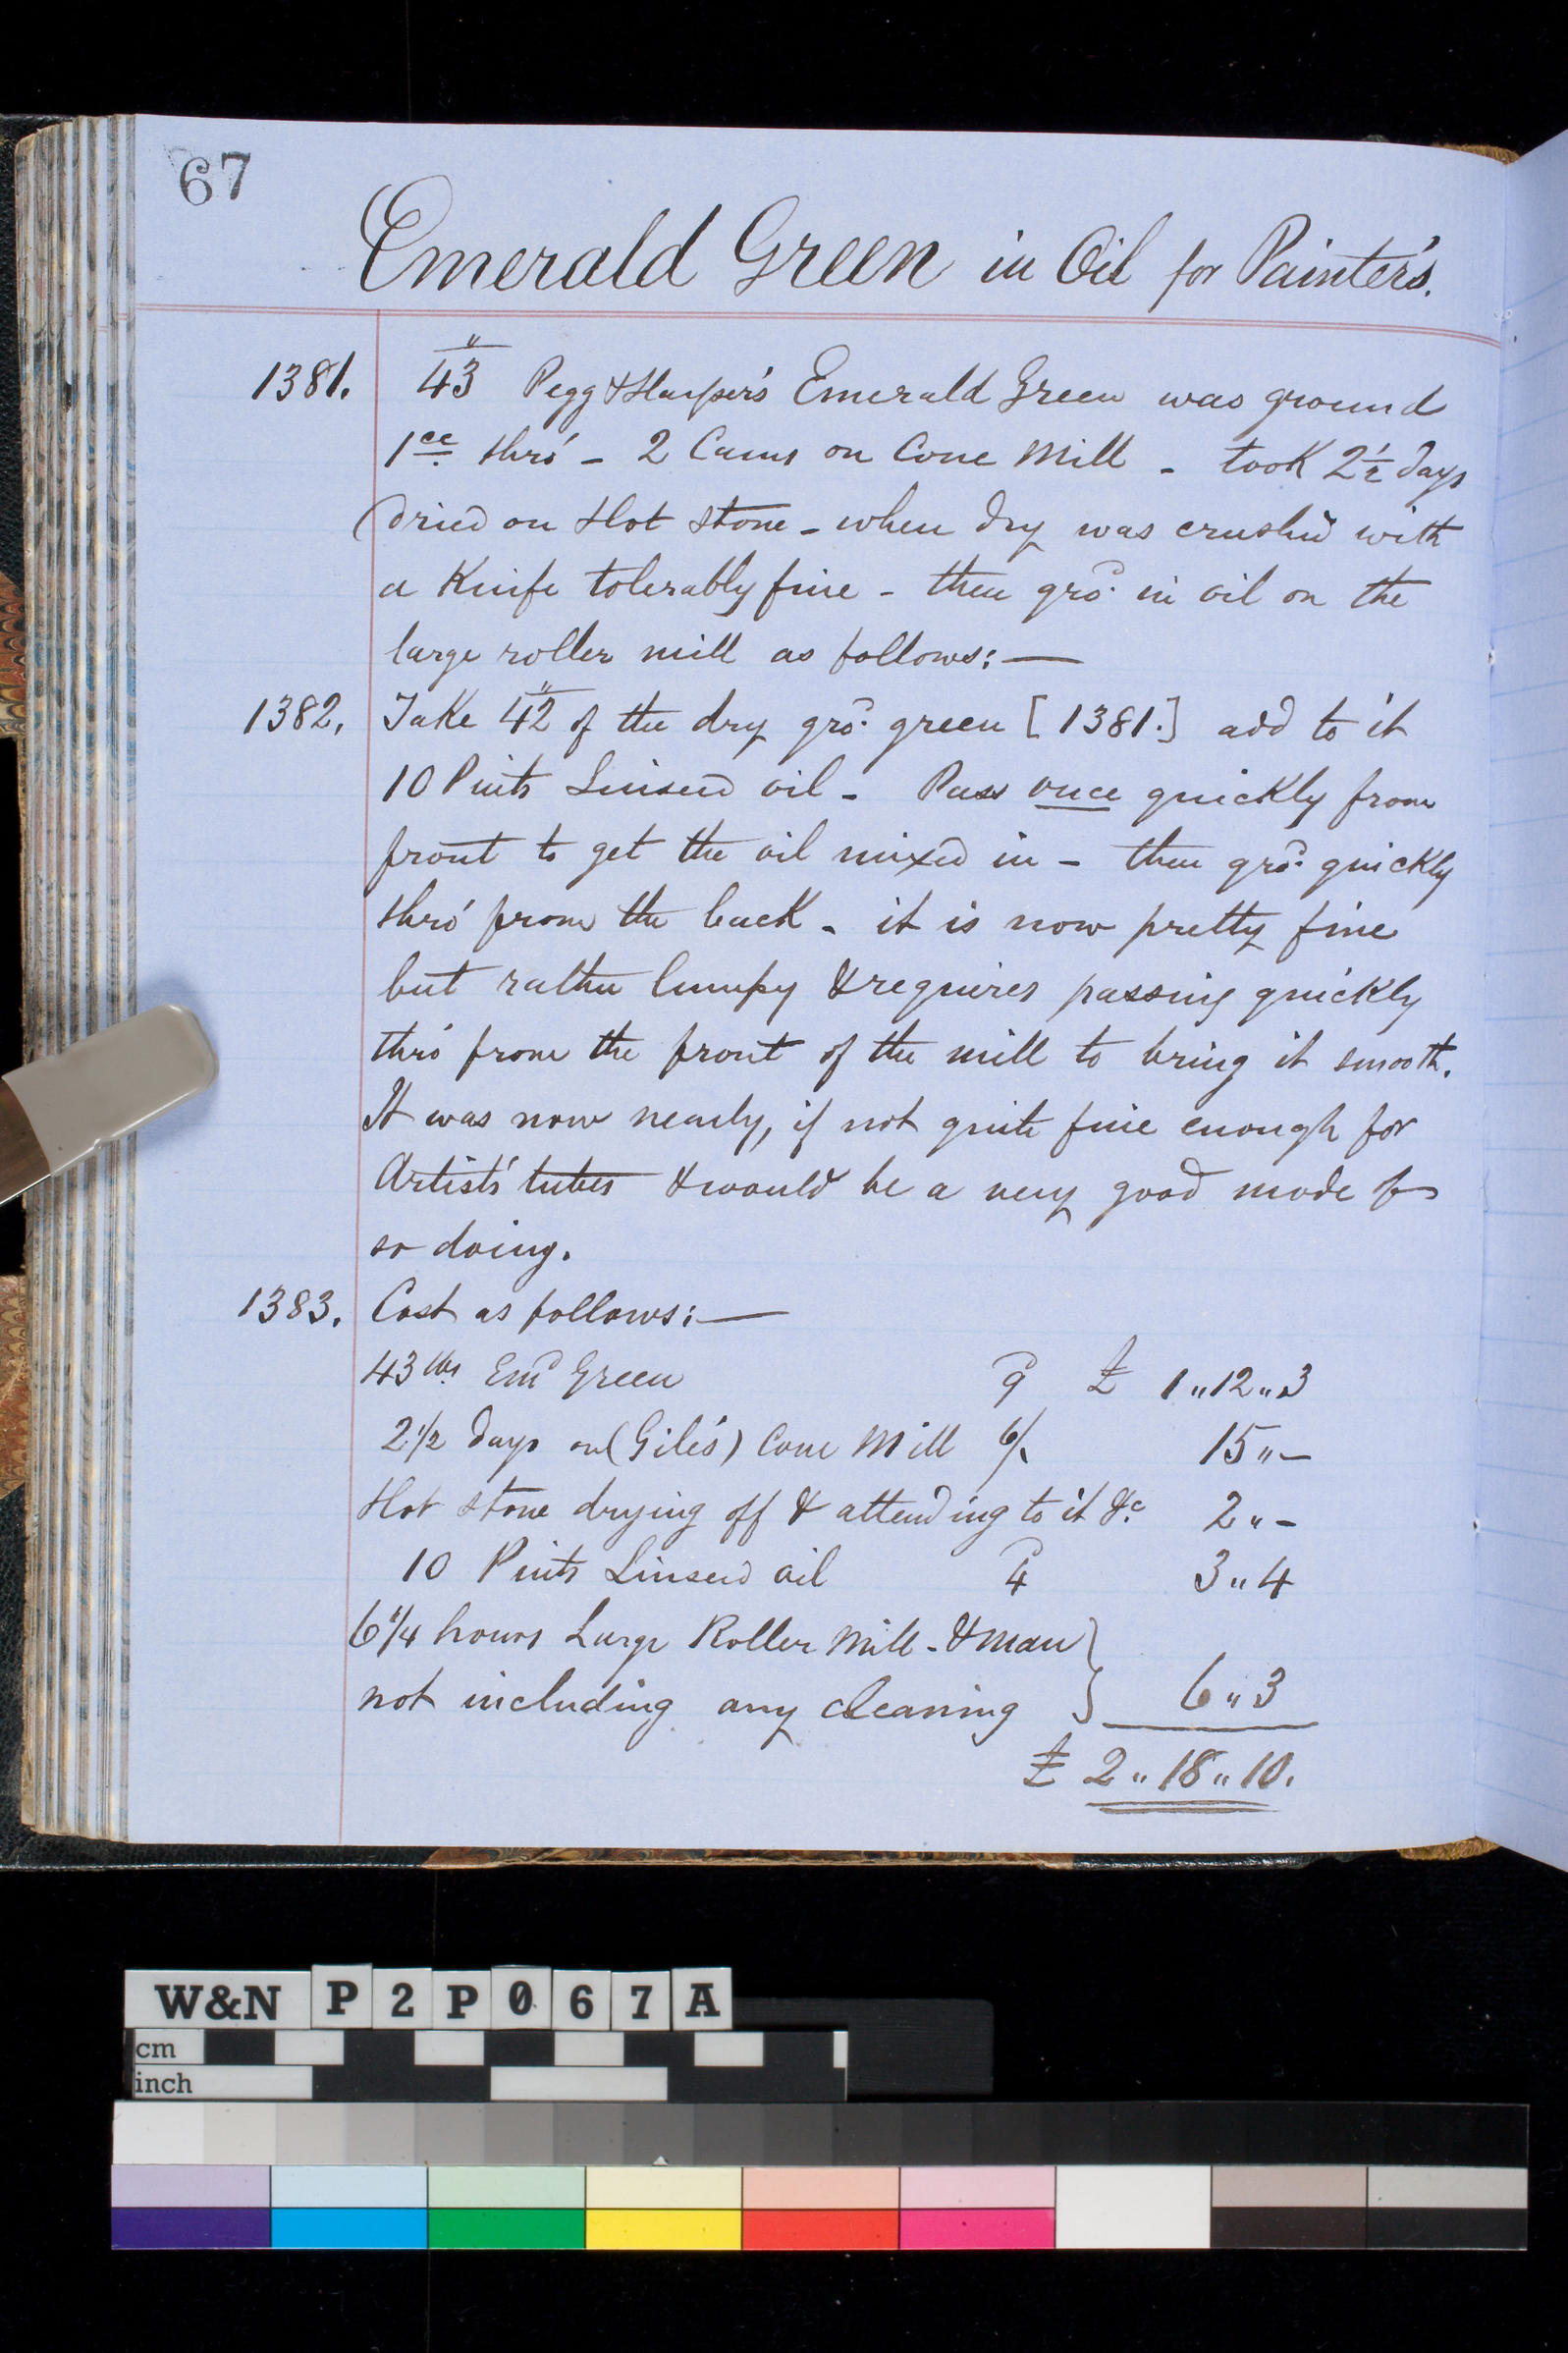 67
Emerald Green in Oil for Painter's.
1381. 43 " Pegg & Harper's Emerald Green was ground
1ce thro' - 2 Cams on Cone Mill - took 2½ days
dried on Hot Stone - when dry was crushed with
a Knife tolerably fine - then grd. in oil on the
large roller mill as follows:—
1382. Take 42 " of the dry grd. green [1381.] add to it
10 Pints Linseed oil - Pass once quickly from
front to get the oil mixed in - then grd. quickly
thro' from the back - it is now pretty fine
but rather lumpy & requires passing quickly
thro' from the front of the mill to bring it smooth.
It was now nearly, if not quite fine enough for
Artists' tubes & would be a very good mode of
so doing.
1383. Cost as follows:—
43 lbs. Emd Green 9d £ 1 " 12 " 3
2½ days on (Gile's) Cone Mill 6/. 15 " -
Hot Stone drying off & attending to it &c. 2 " -
10 Pints Linseed oil 4d 3 " 4
6¼ hours Large Roller Mill - & Man }
not including any cleaning } 6 " 3
£ 2 " 18 " 10.
W&N P2P067A
cm
inch